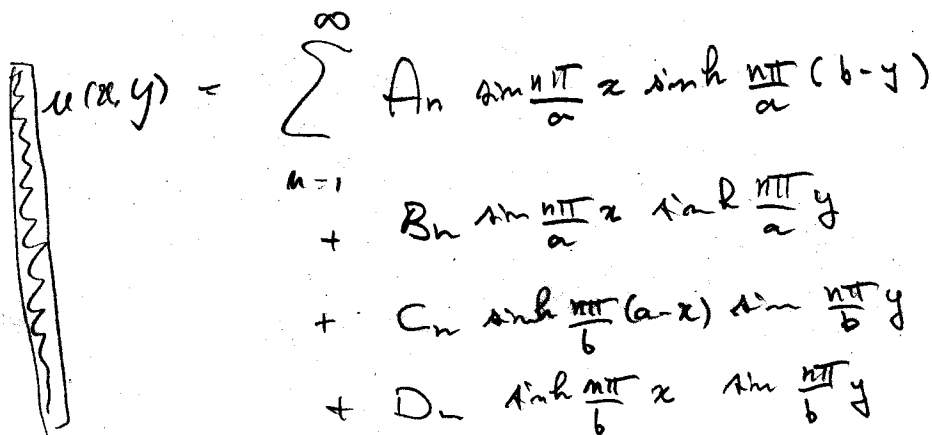 u(x,y) = ∞ ∑ n=1 An sin nπ/a x sinh nπ/a (b-y)
+ Bn sin nπ/a x sinh nπ/a y
+ Cn sinh nπ/b (a-x) sin nπ/b y
+ Dn sinh nπ/b x sin nπ/b y